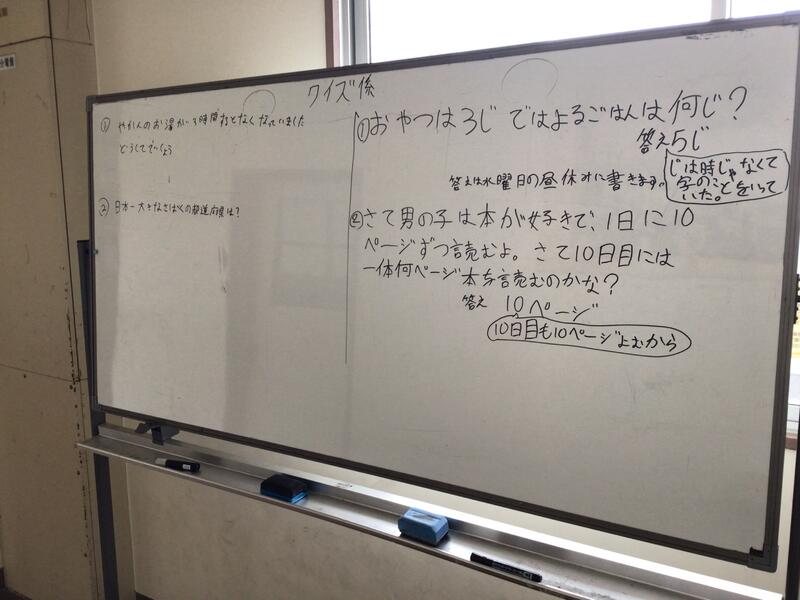 クイズ係
① やかんのお湯が3時間
どうしてでしょう
② 日本一大きな
は?
① おやつは3じ ではよるごはんは何じ?
答え5じ
じは時じゃなくて
字のことをいって
いた。
答えは水曜日の昼休みに書きます。
② さて男の子は本が好きで、1日に10
ページずつ読むよ。さて10日目には
一体何ページ本を読むのかな?
答え 10ページ
10日目も10ページよむから